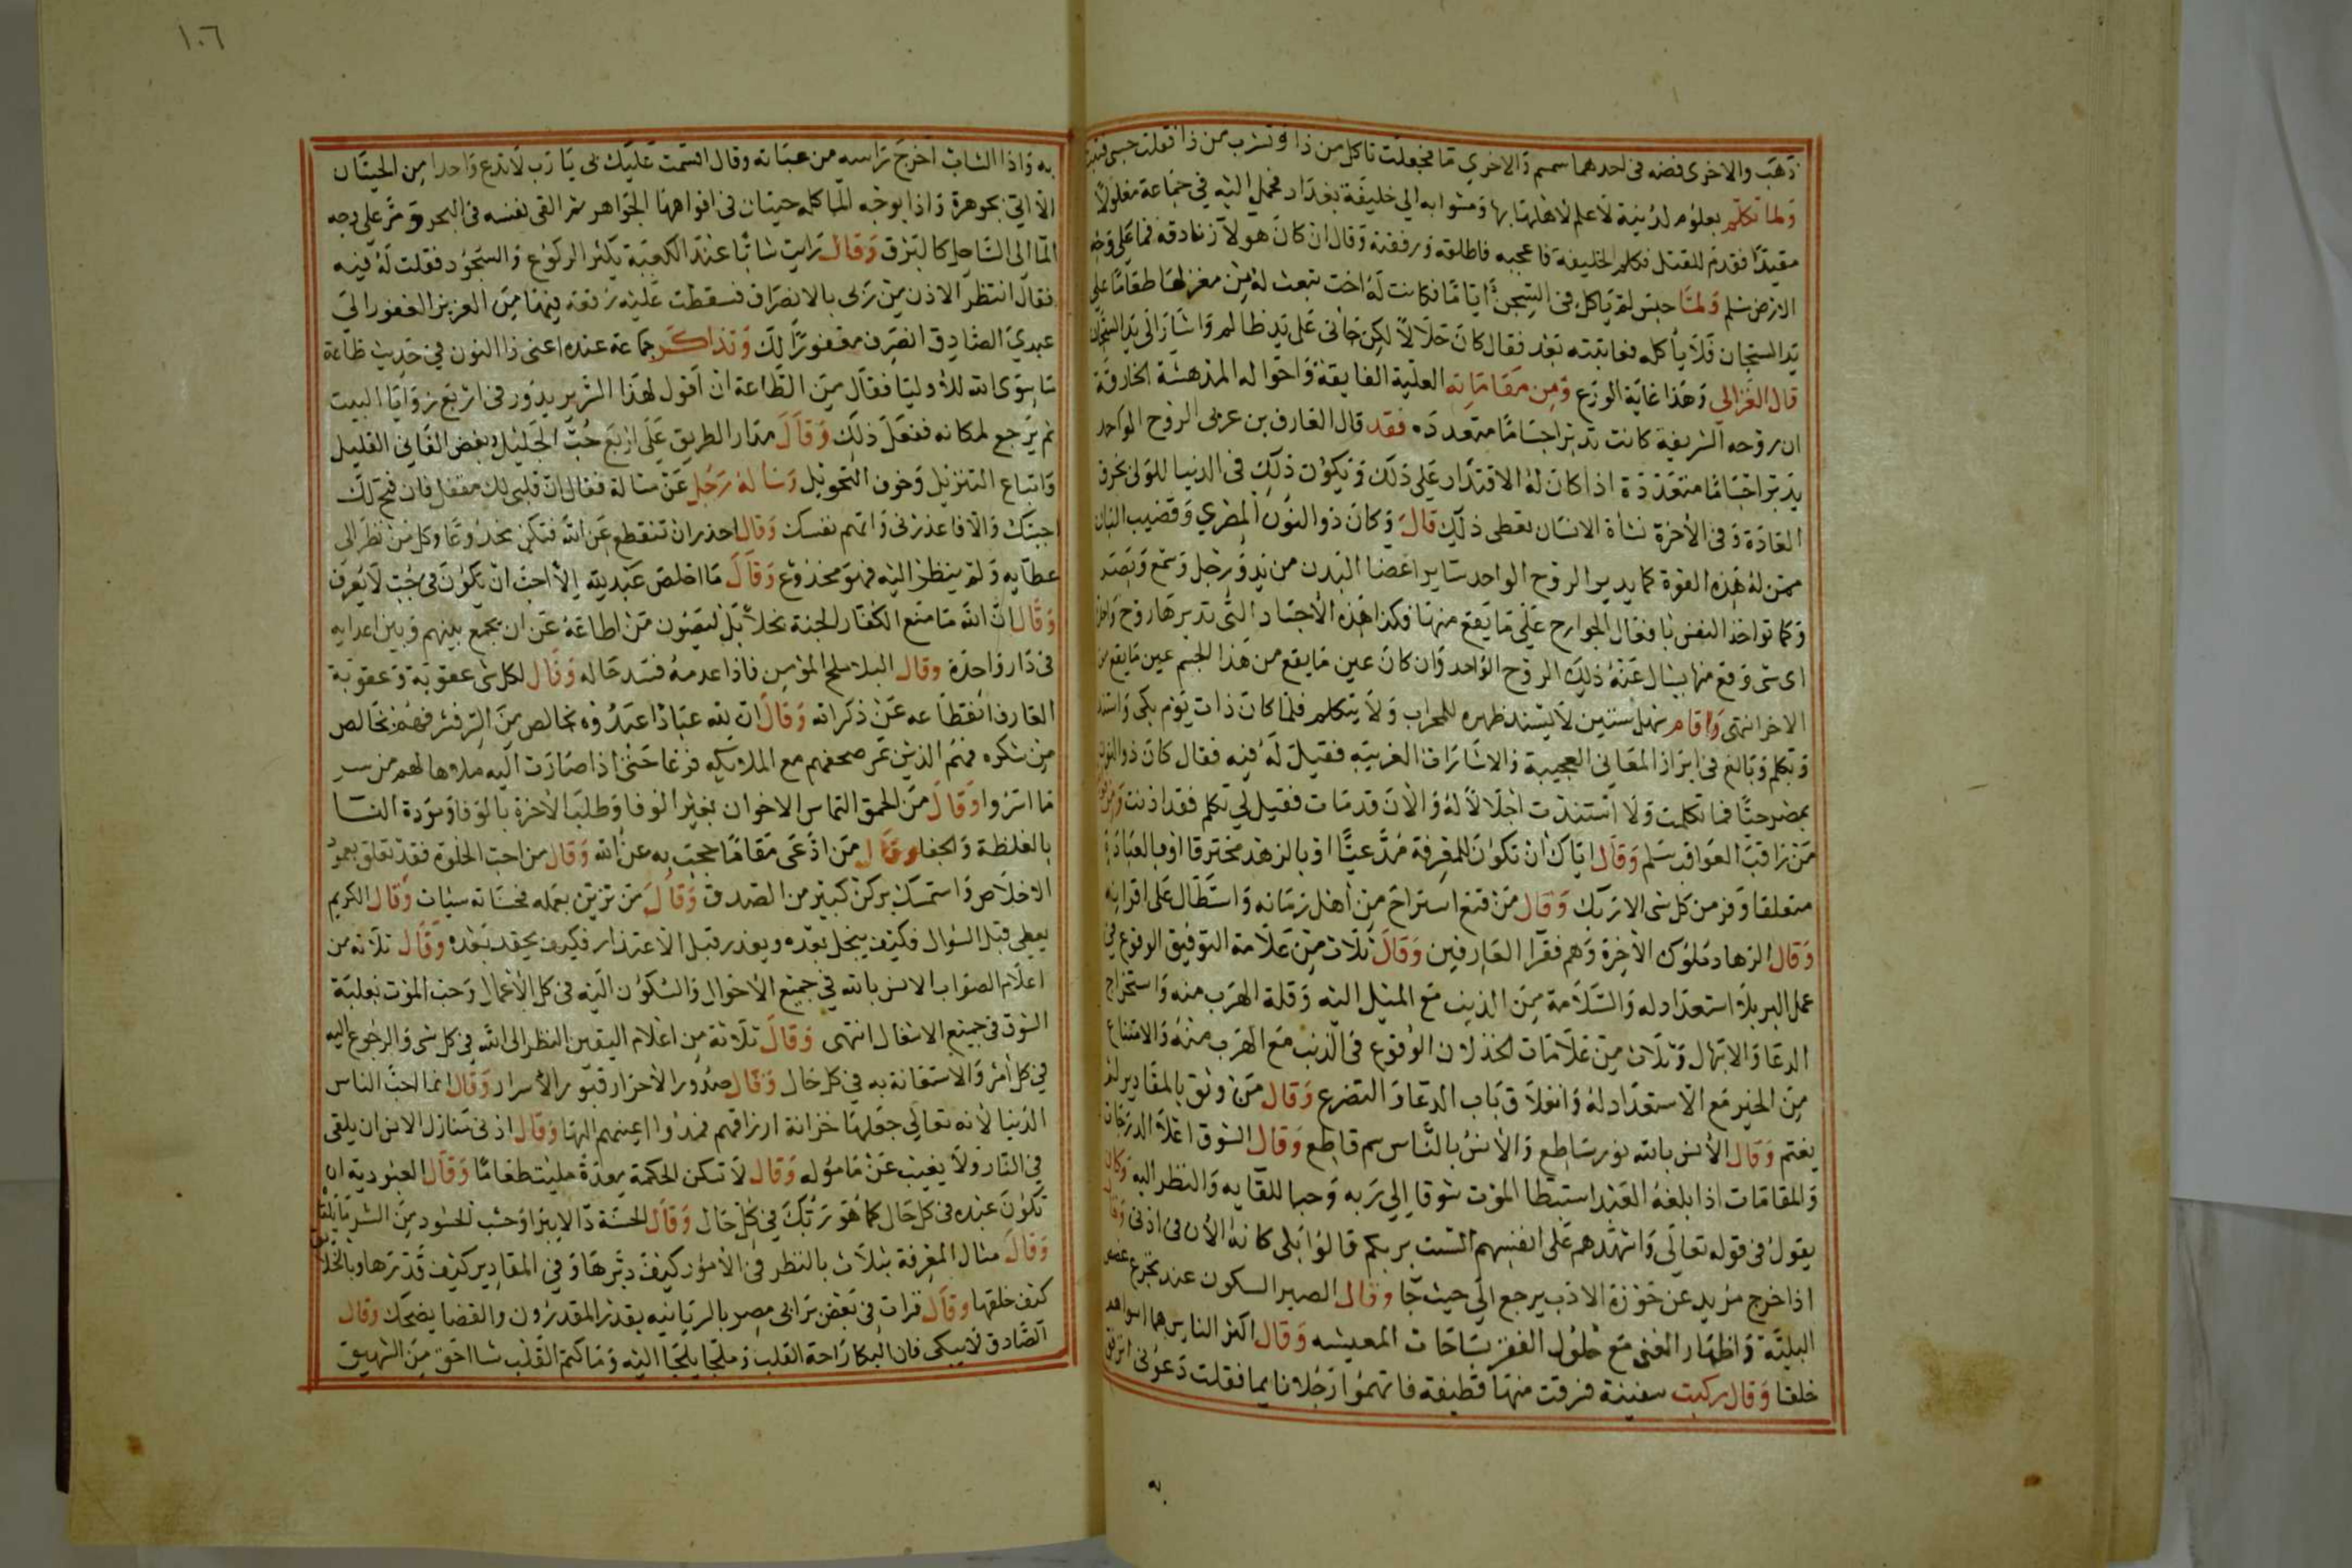 ذهب والاخرى فضه فى احدهما سمسم والاخرى ما فجعلت تاكل من ذا وتشرب من ذا فقلت حسبى فتبت
ولما تكلم بعلوم لدنية لا علم لاهلها بها وشوا به الى خليفة بغداد فحمل اليه فى جماعة مغلولا
مقيدا فقدم للقتل فكلم الخليفة فاعجبه فاطلقه ورفقته وقال ان كان هولا زنادقة فما على وجه
الارض مسلم ولما حبس لم ياكل فى السجن اياما فكانت له اخت تبعث له من مغزلها طعاما على
يد السجان فلا ياكله فعاتبته بعد فقال كان حلالا لكن جانى على يد ظالم واشار الى يد السجان
قال الغزالي وهذا غاية الورع ومن مقاماته العلية الفايقة واحواله المدهشة الخارقة
ان روحه الشريفة كانت تدبر اجساما متعدده فقد قال العارف بن عربى الروح الواحد
يدبر اجساما متعددة اذا كان له الاقتدار على ذلك ويكون ذلك فى الدنيا للولى بخرق
العادة وفى الاخرة نشأة الانسان تعطى ذلك قال وكان ذو النون المصري وقضيب البان
ممن له هذه القوة كما يدبر الروح الواحد ساير اعضا البدن من يد ورجل وسمع وبصر
وكما تواخذ النفس بافعال الجوارح على ما يقع منها فكذا هذه الاجساد التى تدبرها روح واحد
اى شى وقع منها يسال عنه ذلك الروح الواحد وان كان عين ما يقع من هذا الجسم عين ما يقع من
الاخر انتهى واقام سهل سنين لا يسند ظهره للمحراب ولا يتكلم فلما كان ذات يوم بكى واستند
وتكلم وبالغ فى ابراز المعانى العجيبة والاشارات الغريبة فقيل له فيه فقال كان ذو النون
بمصر حيا فما تكلمت ولا استندت اجلالا له والان قد مات فقيل لي تكلم فقد اذنت
من راقب العواقب سلم وقال اياك ان تكون للمعرفة مدعيا او بالزهد محترفا او بالعبادة
متعلقا وفر من كل شى الى ربك وقال من قنع استراح من اهل زمانه واستطال على اقرانه
وقال الزهاد ملوك الاخرة وهم فقرا العارفين وقال ثلاث من علامة التوفيق الوقوع في
عمل البر بلا استعداد له والسلامة من الذنب مع الميل اليه وقلة الهرب منه واستخراج
الدعا والابتهال وثلاث من علامات الخذلان الوقوع فى الذنب مع الهرب منه والامتناع
من الخير مع الاستعداد له وانغلاق باب الدعا والتضرع وقال من وثق بالمقادير لم
يغتم وقال الانس بالله نور ساطع والانس بالناس سم قاطع وقال الشوق اعلا الدرجات
والمقامات اذا بلغه العبد استبطا الموت شوقا الى ربه وحبا للقايه والنظر اليه وكان
يقول فى قوله تعالى واشهدهم على انفسهم الست بربكم قالوا بلى كانه الان فى اذنى وقال
اذا خرج مريد عن حوزة الادب يرجع الى حيث جا وقال الصبر السكون عند تجرع غصص
البلية واظهار الغنى مع حلول الفقر بساحات المعيشه وقال اكثر الناس هما اسواهم
خلقا وقال ركبت سفينة فسرقت منها قطيفة فاتهموا رجلا نايما فقلت دعونى ارفق
١٠٦
به واذا الشاب اخرج راسه من عباته وقال اقسمت عليك يا رب لا تدع واحدا من الحيتان
الا اتى بجوهرة واذا بوجه الما كله حيتان فى افواهها الجواهر ثم القى نفسه فى البحر ومر على وجه
الما الى الساحل كالبرق وقال رايت شابا عند الكعبة يكثر الركوع والسجود فقلت له فيه
فقال انتظر الاذن من ربى بالانصراف فسقطت عليه رقعة فيها من العزيز الغفور الى
عبدي الصادق انصرف مغفورا لك وتذاكر جماعة عنده اعنى ذا النون فى حديث طاعة
ما سوى الله للأوليا فقال من الطاعة ان اقول لهذا السرير يدور فى اربع زوايا البيت
ثم يرجع لمكانه ففعل ذلك وقال مدار الطريق على اربع حب الجليل وبغض الفاني القليل
واتباع التنزيل وخوف التحويل وساله رجل عن مسالة فقال ان قلبى لك مقفل فان فتح لك
اجبتك والا فاعذرنى واتهم نفسك وقال احذر ان تنقطع عن الله فتكن مخدوعا وكل من نظر الى
عطايه ولم ينظر اليه فهو مخدوع وقال ما اخلص عبد لله الا احب ان يكون فى جب لا يعرف
وقال ان الله ما منع الكفار الجنة بخلا بل ليصون من اطاعه عن ان يجمع بينهم وبين اعدايه
فى دار واحدة وقال البلا ملح المؤمن فاذا عدمه فسد حاله وقال لكل شى عقوبة وعقوبة
العارف انقطاعه عن ذكر الله وقال ان لله عبادا عبدوه بخالص من السر فشرفهم بخالص
من شكره فهم الذين تمر صحفهم مع الملايكه فرغا حتى اذا صارت اليه ملاها لهم من سر
ما اسروا وقال من الحمق التماس الاخوان بغير الوفا وطلب الاخرة بالوفا ومودة النسا
بالغلظة والجفا وقال من ادعى مقاما حجب به عن الله وقال من احب الخلوة فقد تعلق بعمود
الاخلاص واستمسك بركن كبير من الصدق وقال من تزين بعمله فحسناته سيات وقال الكريم
يعطى قبل السوال فكيف يبخل بعده ويعذر قبل الاعتذار فكيف يحقد بعده وقال ثلاثه من
اعلام الصواب الانس بالله في جميع الاحوال والسكون اليه فى كل الاعمال وحب الموت بغلبة
الشوق فى جميع الاشغال انتهى وقال ثلاثة من اعلام اليقين النظر الى الله في كل شى والرجوع اليه
في كل امر والاستعانة به في كل حال وقال صدور الاحرار قبور الاسرار وقال انما احب الناس
الدنيا لانه تعالى جعلها خزانة ارزاقهم فمدوا اعينهم اليها وقال ادنى منازل الانس ان يلقى
في النار ولا يغيب عن مامؤله وقال لا تسكن الحكمة معدة مليت طعاما وقال العبودية ان
تكون عبده فى كل حال كما هو ربك في كل حال وقال الحسد دا لا يبرا وحسب الحسود من الشر ما يلقى
وقال مثال المعرفة بثلاث بالنظر فى الامور كيف دبرها وفي المقادير كيف قدرها وبالخلايق
كيف خلقها وقال قرات فى بعض برابى مصر بالسريانيه يقدر المقدرون والقضا يضحك وقال
الصادق لا يبكى فان البكا راحة القلب وملجا يلجا اليه وما كتم القلب شيا احق من الشهيق